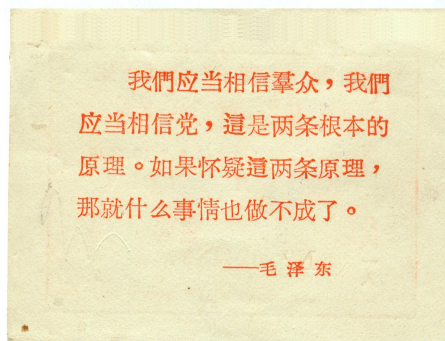 我們应当相信羣众，我們
应当相信党，這是两条根本的
原理。如果怀疑這两条原理，
那就什么事情也做不成了。
——毛泽东